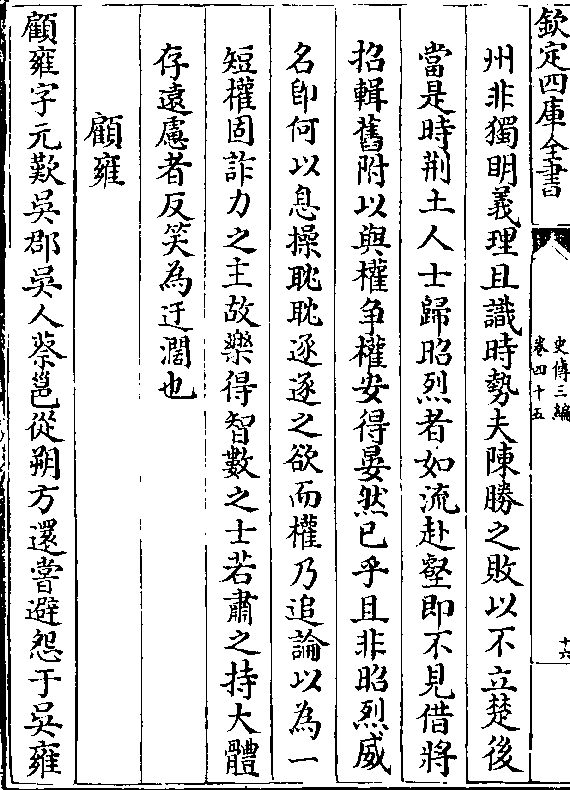 欽定四庫全書
史傳三編
卷四十五
十六
州非獨明義理且識時勢夫陳勝之敗以不立楚後
當是時荆土人士歸昭烈者如流赴壑即不見借將
招輯舊附以與權爭權安得晏然已乎且非昭烈威
名卽何以息操耽耽逐逐之欲而權乃追論以為一
短權固詐力之主故樂得智數之士若肅之持大體
存遠慮者反笑為迂濶也
顧雍
顧雍字元歎吳郡吳人蔡邕從朔方還嘗避怨于吳雍